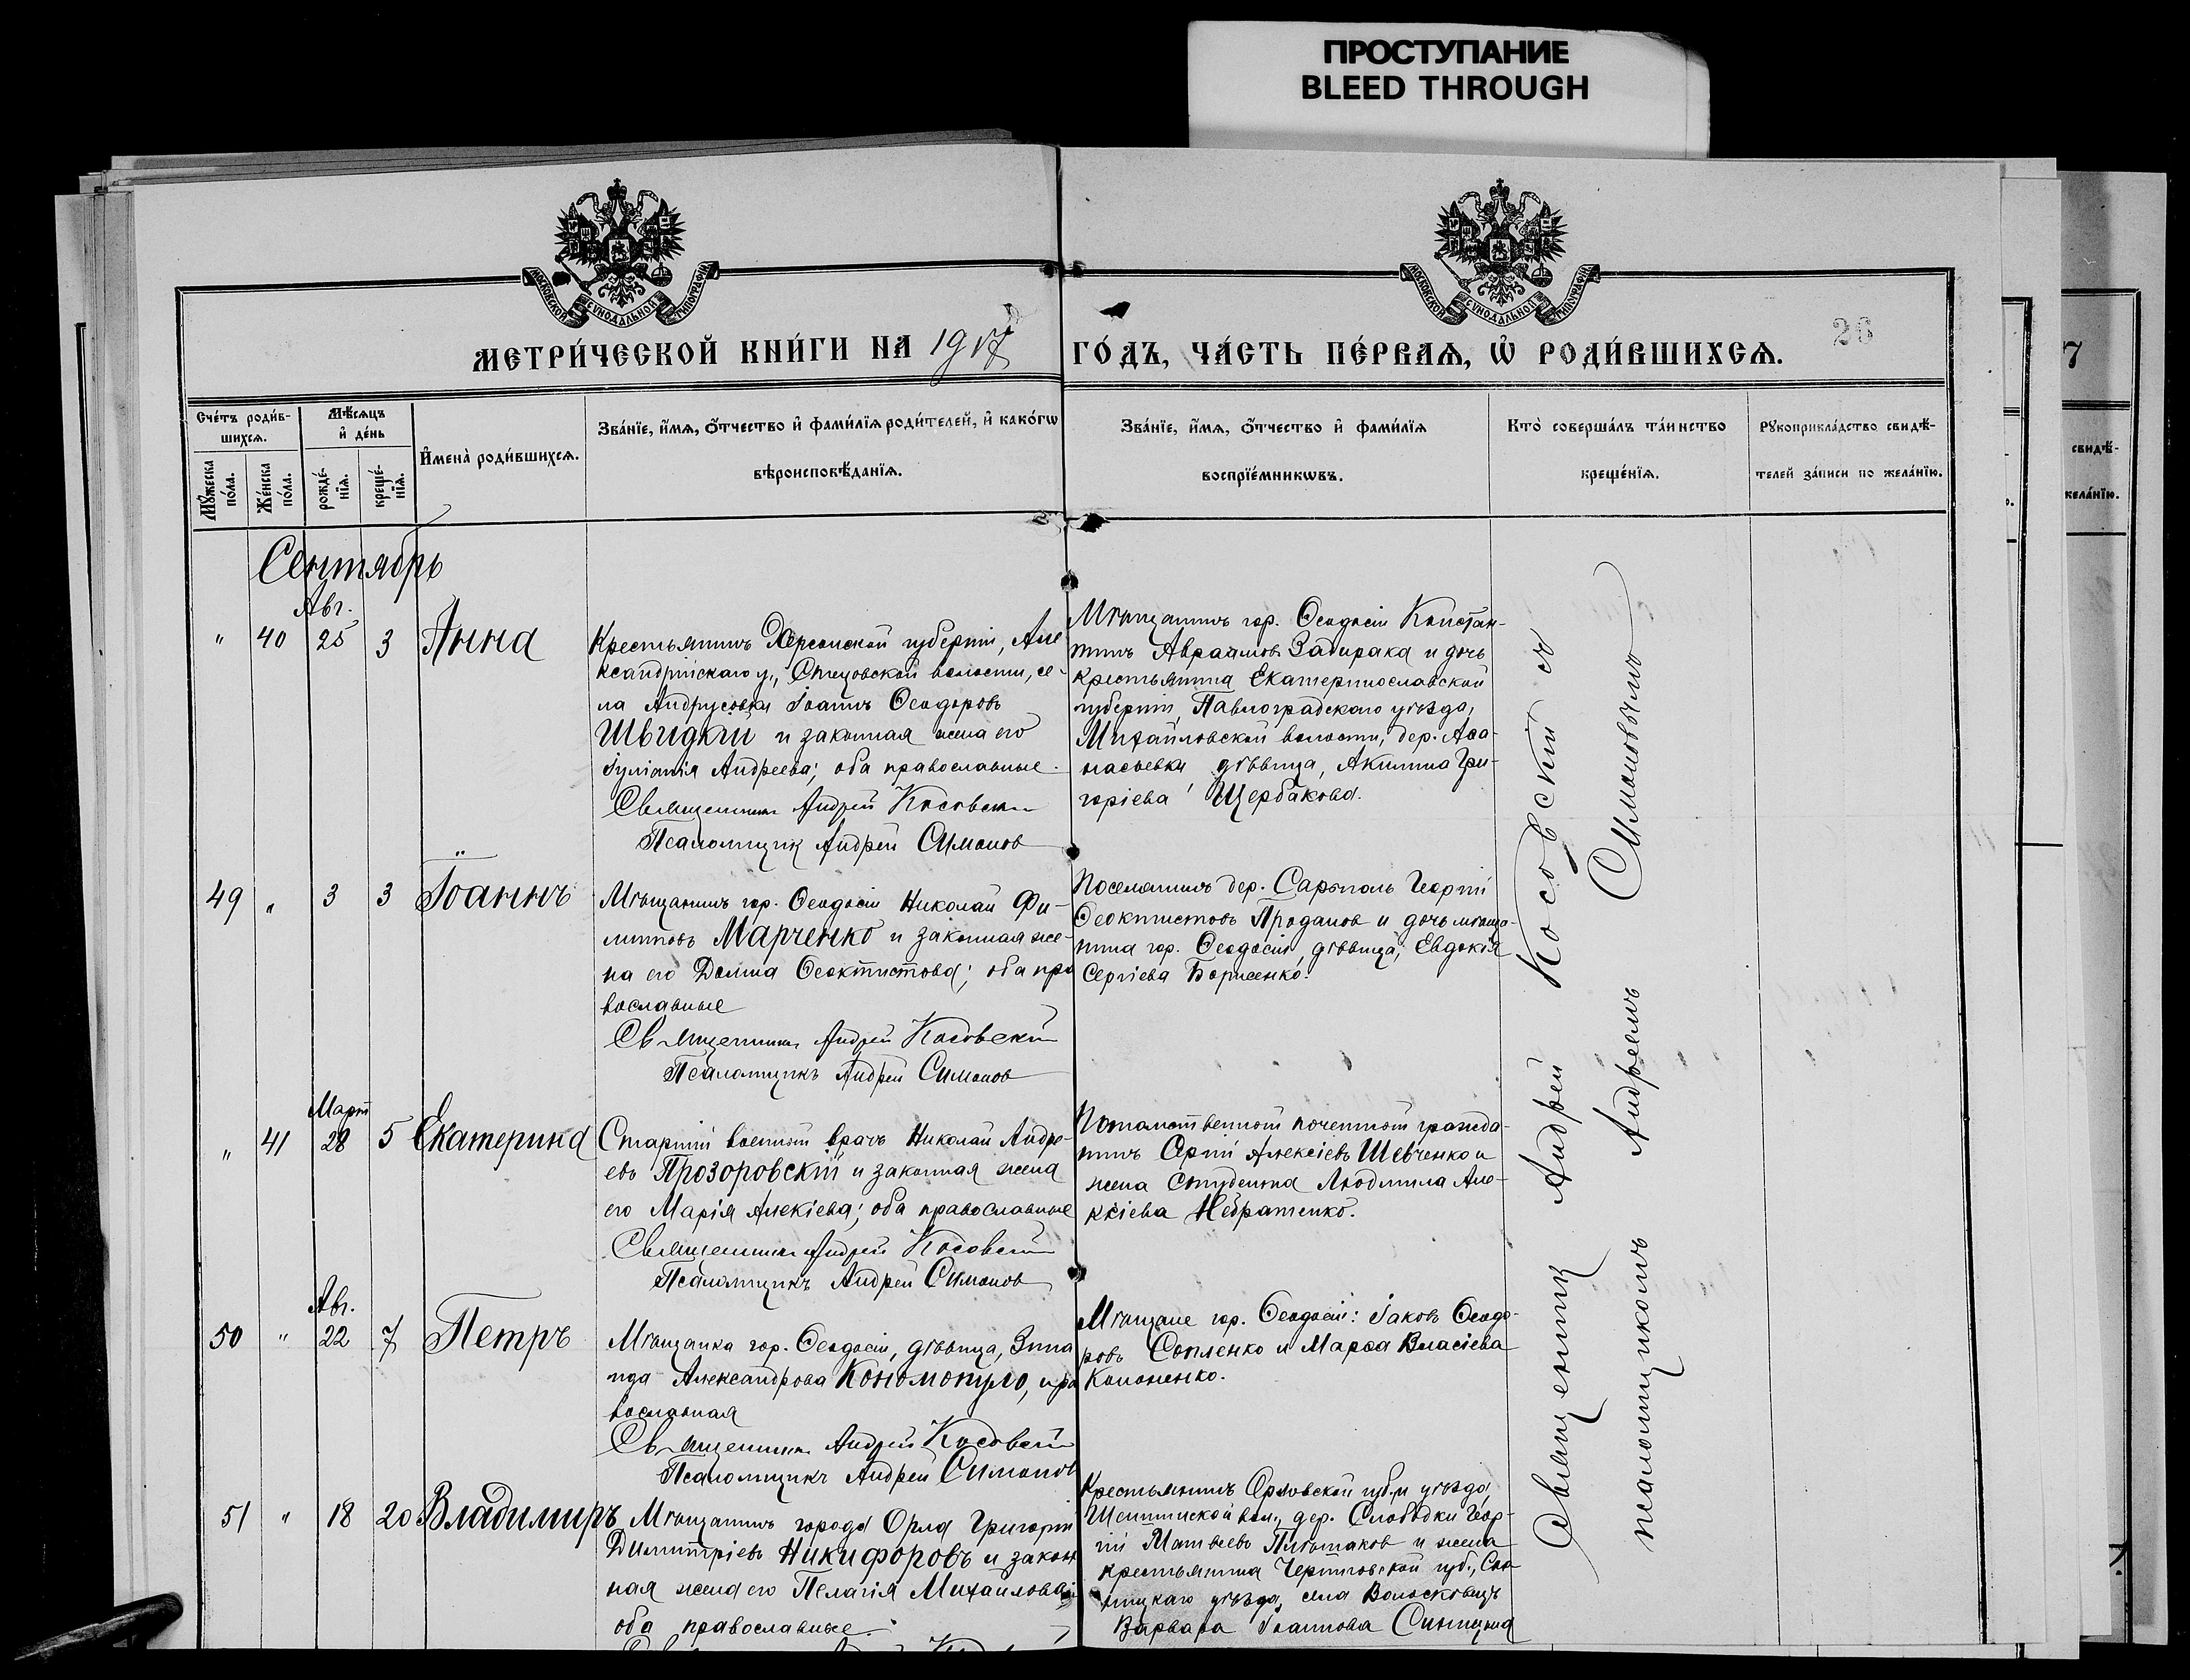 ПРОСТУПАНИЕ
BLEED THROUGH
МОСКОВСКОЙ СѴНОДАЛЬНОЙ ТИПОГРАФІИ
МОСКОВСКОЙ СѴНОДАЛЬНОЙ ТИПОГРАФІИ
МЕТРИ́ЧЕСКОЙ КНИ́ГИ НА 1917 ГО́ДЪ, ЧА́СТЬ ПЕ́РВАѦ, Ѡ҆ РОДИ́ВШИХСѦ.
26
7
Сче́тъ роди́в-
шихсѧ.
Мѣ́сѧцъ
и҆ де́нь
Мꙋ́жеска по́ла.
Же́нска по́ла.
рожде́-
нїѧ.
креще́-
нїѧ.
И҆мена̀ роди́вшихсѧ.
Зва́нїе, и҆́мѧ, ѻ҆́тчество и҆ фами́лїѧ роди́телей, и҆ како́гѡ
вѣроисповѣ́данїѧ.
Зва́нїе, и҆́мѧ, ѻ҆́тчество и҆ фами́лїѧ
воспрїе́мникѡвъ.
Кто̀ соверша́лъ та́инство
креще́нїѧ.
Рꙋкоприкла́дство свидѣ́-
телей за́писи по жела́нїю.
свидѣ́-
жела́нїю.
Сентябрь
Авг.
" 40 25 3 Анна
Крестьянинъ Херсонской губерніи, Але
ксандрійскаго у., Стецовской волости, се-
ла Андрусовки Іоаннъ Ѳеодоровъ
Швидкій и законная жена его
Іуліанія Андреева; оба православные.
Священникъ Андрей Косовскій
Псаломщик Андрей Симонов
Мѣщанинъ гор. Ѳеодосіи Констан-
тинъ Авраамов Задирака и дочь
крестьянина Екатеринославской
губерніи, Павлоградскаго уѣзда,
Михайловской волости, дер. Аѳа-
насьевки дѣвица, Акилина Гри-
горіева Щербакова.
49 " 3 3 Іоаннъ
Мѣщанинъ гор. Ѳеодосіи Николай Фи-
липповъ Марченко и законная же-
на его Домна Ѳеоктистова; оба пра
вославные
Священникъ Андрей Косовскій
Псаломщикъ Андрей Симонов
Поселянинъ дер. Сарыголь Георгій
Ѳеоктистовъ Проданов и дочь мѣща-
нина гор. Ѳеодосіи, дѣвица, Евдокія
Сергіева Борисенко.
Март
" 41 28 5 Екатерина
Старшій военный врачъ Николай Андре-
евъ Прозоровскій и законная жена
его Марія Алексіева; оба православные
Священникъ Андрей Косовскій
Псаломщикъ Андрей Симонов
Потомственный почетный гражда-
нинъ Сергій Алексіевъ Шевченко и
жена студента Людмила Але-
ксіева Небратенко.
Авг.
50 " 22 7 Петръ
Мѣщанка гор. Ѳеодосіи, дѣвица, Зина
ида Александрова Кономопуло, пра
вославная
Священникъ Андрей Косовскій
Псаломщикъ Андрей Симонов
Мѣщане гор. Ѳеодосіи: Іаковъ Ѳеодо-
ровъ Сопленко и Марѳа Власіева
Кононенко.
51 " 18 20 Владимиръ
Мѣщанинъ города Орла Григорій
Димитріевъ Никифоровъ и закон
ная жена его Пелагія Михайлова;
оба православные.
Крестьянинъ Орловской губ. и уѣзда,
вол., дер. Слободки Геор-
гій Матвеевъ и жена
крестьянина Черниговской губ., Сос-
ницкаго уѣзда, села
Варвара Іоаннова
Священник Андрей Косовскій съ
псаломщикомъ Андреемъ Симоновымъ